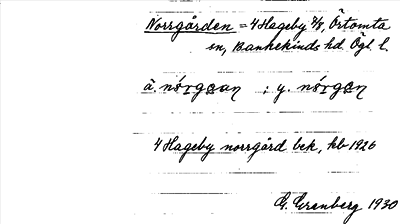 Norrgården = 4 Hageby 3/8, Örtomta
sn, Bankekinds hd. Ögl l.
ä. nórgɑan ; y. nórgɑn
4 Hageby norrgård bek, kb 1926
G. Cranberg 1930